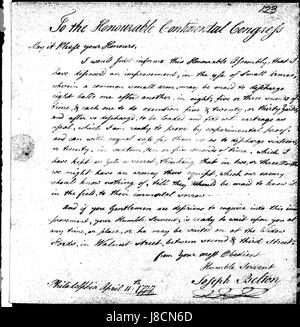 123
To the Honourable Continental Congress
May it Please your Honours,
I would just informe this Honourable Assembly, that I
have discovered an improvement, in the use of Small Armes,
wherein a common small arm, may be maid to discharge
eight balls one after another, in eight, five or three seconds of
time, & each one to do execution five & twenty, or thirty yards,
and after so discharg'd, to be loaded and fire'd with cartrage as
usual, which I am ready to prove by experimental proof.
and can with eaquel ease fix them so as to discharge sixteen
or twenty, in sixteen, ten or five seconds of time, which I
have kept as yet a secret, thinking that in two, or three Months
we might have an armey thus equipt, which our enemy
should know nothing of, till they should be maid to know it
in the field, to their immortal sorrow
And if you Gentlemen are desirous to enquire into this im-
provement, your Humble Servent, is ready to wait upon you at
any time, or place, or he may be waited on at the Widow
Fords, in Walnut Street, between second & third Street
from your most Obedient
Humble Servent
Joseph Belton
Philadelphia April 11th 1777
alamy
Image ID: J8CN6D
www.alamy.com